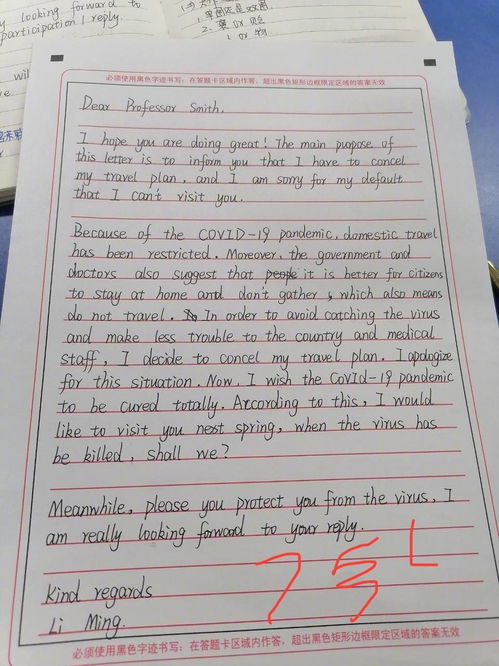 looking forward to
participation I reply.
2.
必须使用黑色字迹书写：在答题卡区域内作答，超出黑色矩形边框限定区域的答案无效
Dear Professor Smith.
I hope you are doing great! The main pupose of
this letter is to inform you that I have to cancel
my travel plan, and I am sorry for my default
that I can't visit you.
Because of the COVID-19 pandemic, domestic travel
has been restricted. Moreover, the government and
doctors also suggest that people it is better for citizens
to stay at home and don't gather, which also means
do not travel. In order to avoid catching the virus
and make less trouble to the country and medical
staff, I decide to cancel my travel plan. I apologize
for this situation. Now, I wish the Covid-19 pandemic
to be cured totally. According to this, I would
like to visit you next spring, when the virus has
be killed, shall we?
Meanwhile, please you protect you from the virus, I
am really looking forward to your reply.
Kind regards
Li Ming.
必须使用黑色字迹书写：在答题卡区域内作答，超出黑色矩形边框限定区域的答案无效